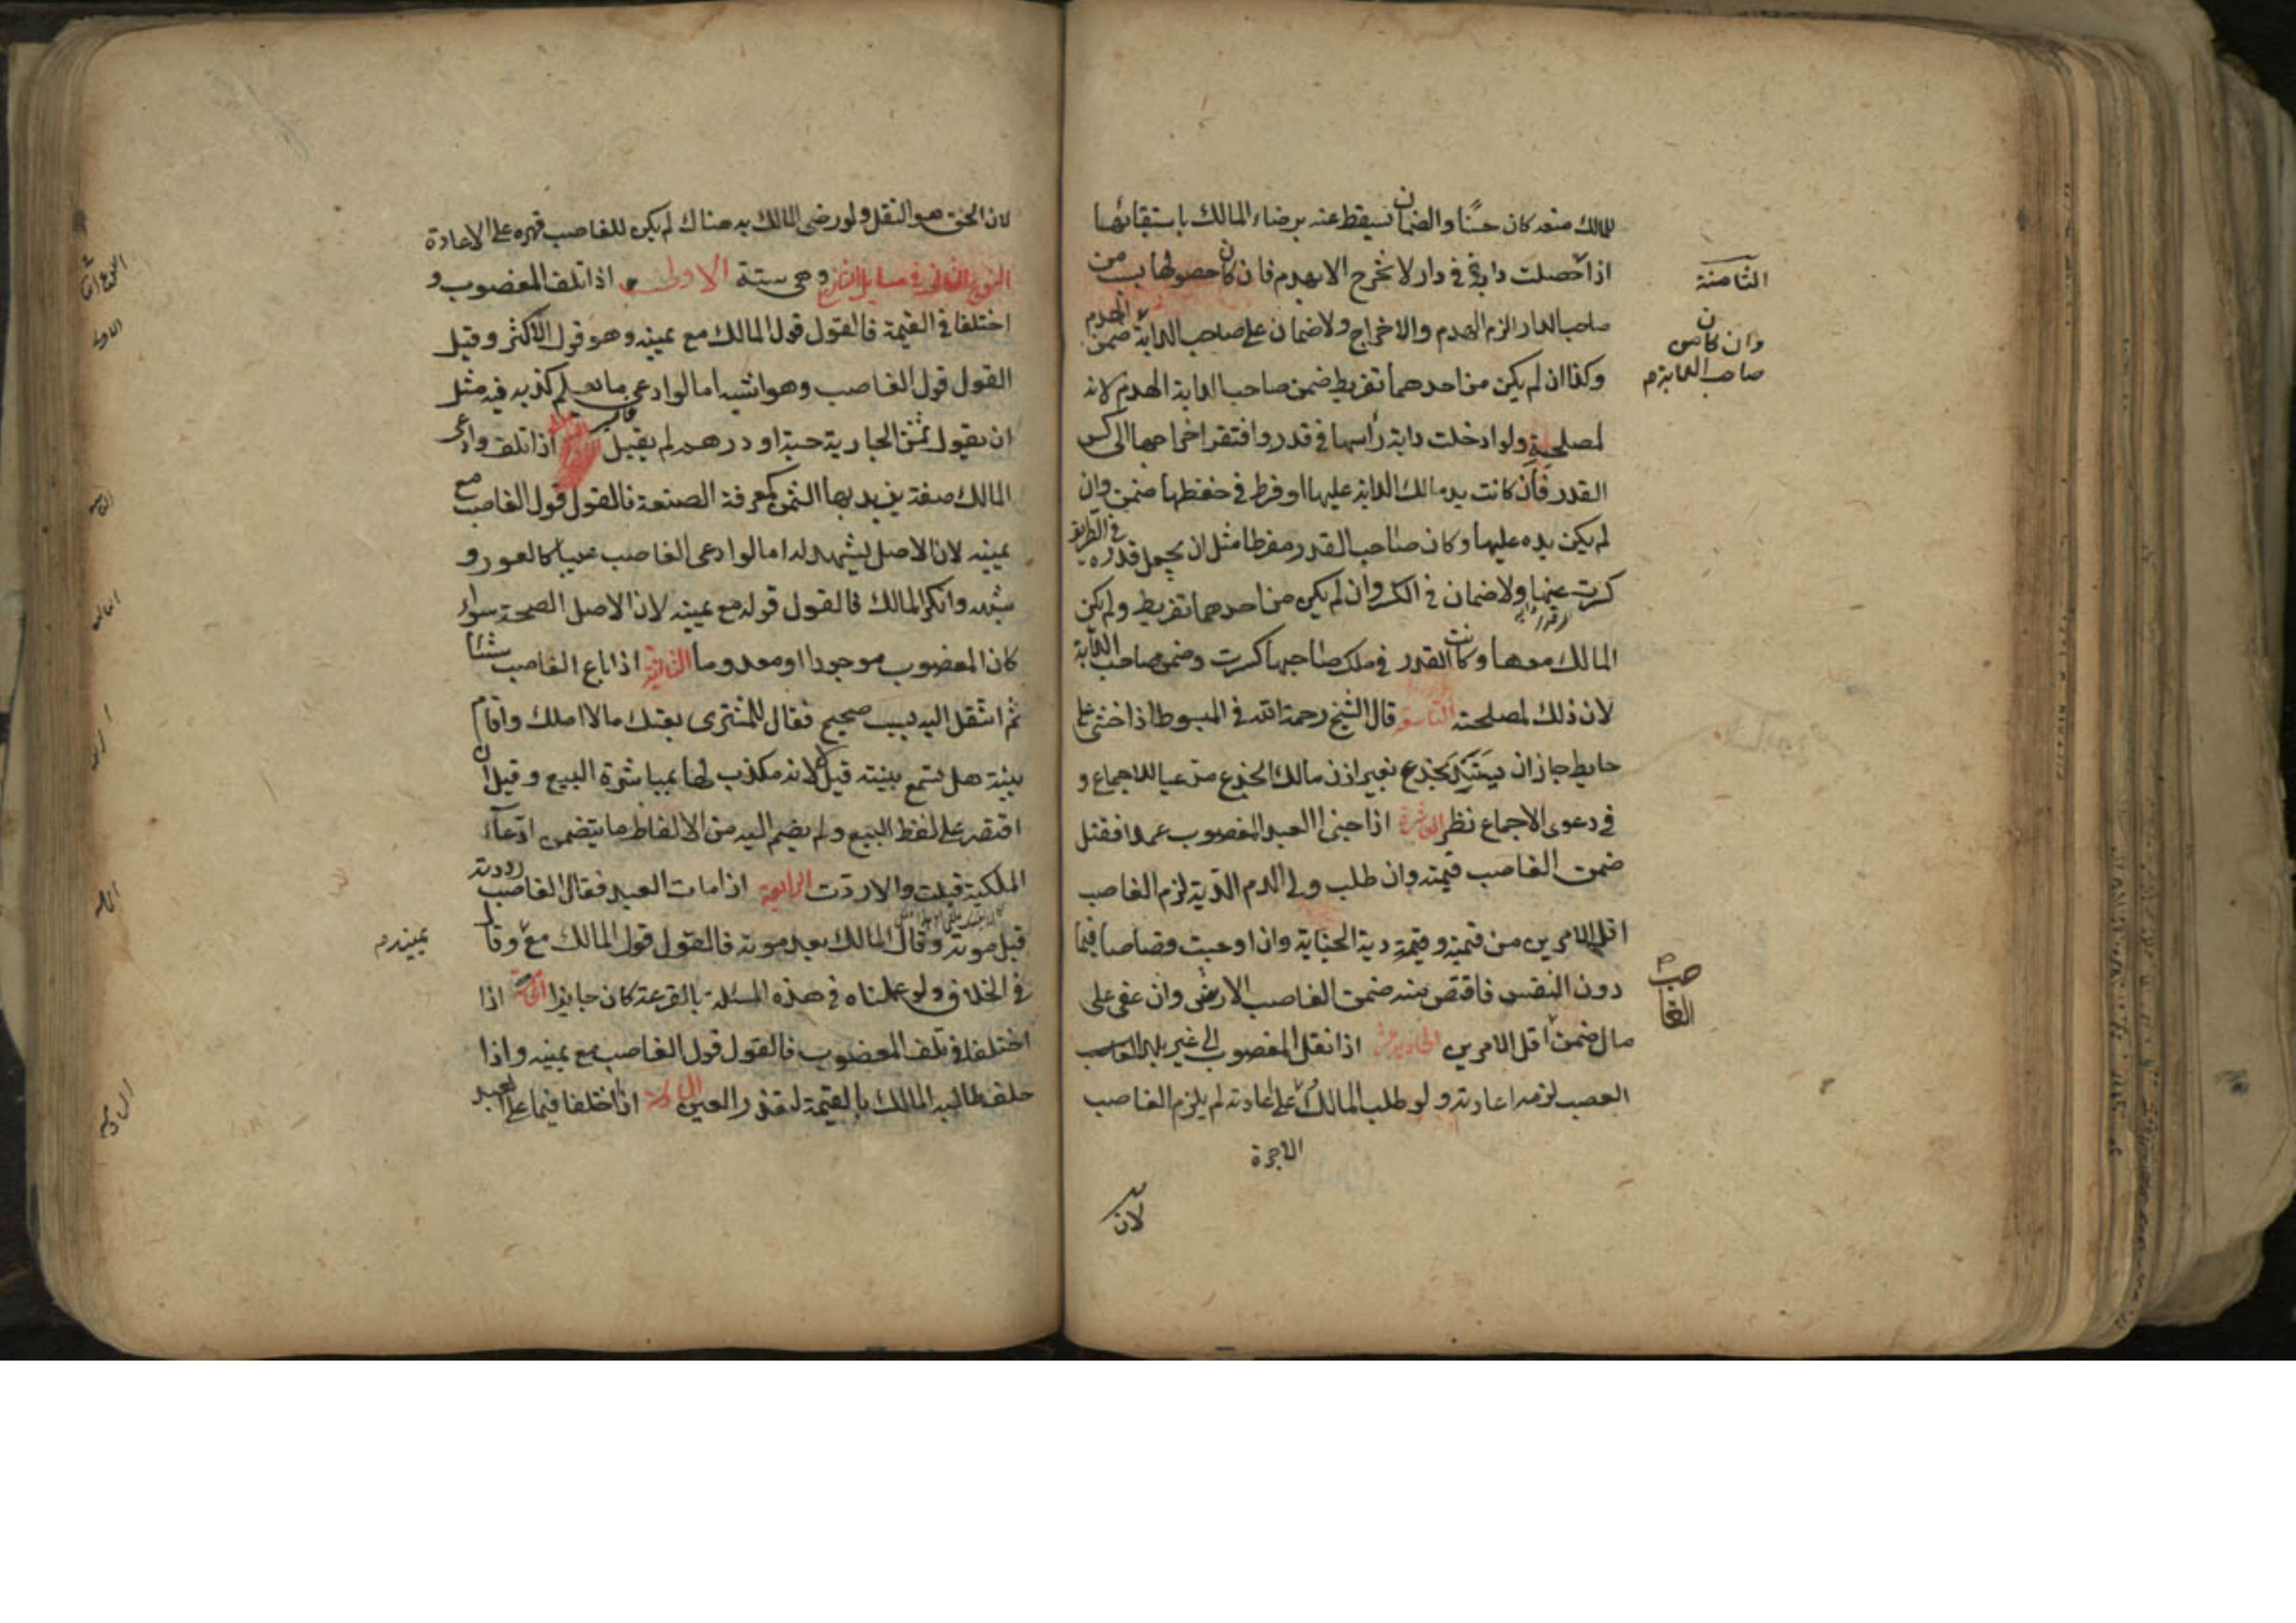 للمالك منعه كان حسنا والضمان يسقط عنه برضاء المالك باستبقائها
الثامنة
اذا حصلت دابة في دار لا تخرج الا بهدم فان كان حصولها بسبب من
صاحب الدار الزم الهدم والاخراج ولا ضمان على صاحب الدابة ضمن الهدم
وان كان من
صاحب الدابة م
وكذا ان لم يكن من احدهما تفريط ضمن صاحب الدابة الهدم لانه
لمصلحته ولو ادخلت دابة رأسها في قدر وافتقر اخراجها الى كسر
القدر فان كانت يد مالك الدابة عليها او فرط في حفظها ضمن وان
لم يكن يده عليها وكان صاحب القدر مفرطا مثل ان يجعل قدره في الطريق
كسرت عنها ولا ضمان في الكسر وان لم يكن من احدهما تفريط ولم يكن
المالك معها وكانت القدر في ملك صاحبها كسرت وضمن صاحب الدابة
لان ذلك لمصلحته التاسعة قال الشيخ رحمة الله في المبسوط اذا خشي على
حايط جاز ان يستند بجذع بغير اذن مالك الجذع مدعيا للاجماع و
في دعوى الاجماع نظر العاشرة اذا جنى العبد المغصوب عمدا فقتل
ضمن الغاصب قيمته وان طلب ولي الدم الدية لزم الغاصب
اقل الامرين من قيمته وقيمة دية الجناية وان اوجبت قصاصا فيما
دون النفس فاقتص منه ضمن الغاصب الارش وان عفى على
الغاصب م
مال ضمن اقل الامرين الحادية عشر اذا نقل المغصوب الى غير بلد الغاصب
الغصب لزمه اعادته ولو طلب المالك على اعادته لم يلزم الغاصب
الاجرة
لان
لان الحق هو النقل ولو رضي المالك به هناك لم يكن للغاصب قهره على الاعادة
النوع الثاني في مسايل التنازع وهي ستة الاولى اذا تلف المغصوب و
اختلفا في القيمة فالقول قول المالك مع يمينه وهو قول الاكثر وقيل
القول قول الغاصب وهو اشبه اما لو ادعى ما يعلم كذبه فيه مثل
ان يقول ثمن الجارية حبة او درهم لم يقبل اذا تلف وادعى
المالك صفة يزيد بها الثمن كمعرفة الصنعة فالقول قول الغاصب مع
يمينه لان الاصل يشهد له اما لو ادعى الغاصب عيبا كالعور و
شبهه وانكر المالك فالقول قوله مع يمينه لان الاصل الصحة سواء
كان المغصوب موجودا او معدوما الثالثة اذا باع الغاصب شيئا
ثم انتقل اليه بسبب صحيح فقال للمشترى بعتك ما لا املك واقام
بينة هل تسمع بينته قيل لا لانه مكذب لها بمباشرة البيع وقيل ان
اقتصر على لفظ البيع ولم يضم اليه من الالفاظ ما يتضمن ادعاء
الملكية قبلت والا ردت الرابعة اذا مات العبد فقال الغاصب رددته
قبل موته وقال المالك بعد موته فالقول قول المالك مع وقال
يمينه م
في الخلاف ولو عملنا في هذه المسئلة بالقرعة كان جايزا الخامسة اذا
اختلفا في تلف المغصوب فالقول قول الغاصب مع يمينه واذا
حلف طالبه المالك بالقيمة لتعذر العين السادسة اذا اختلفا فيما على العبد